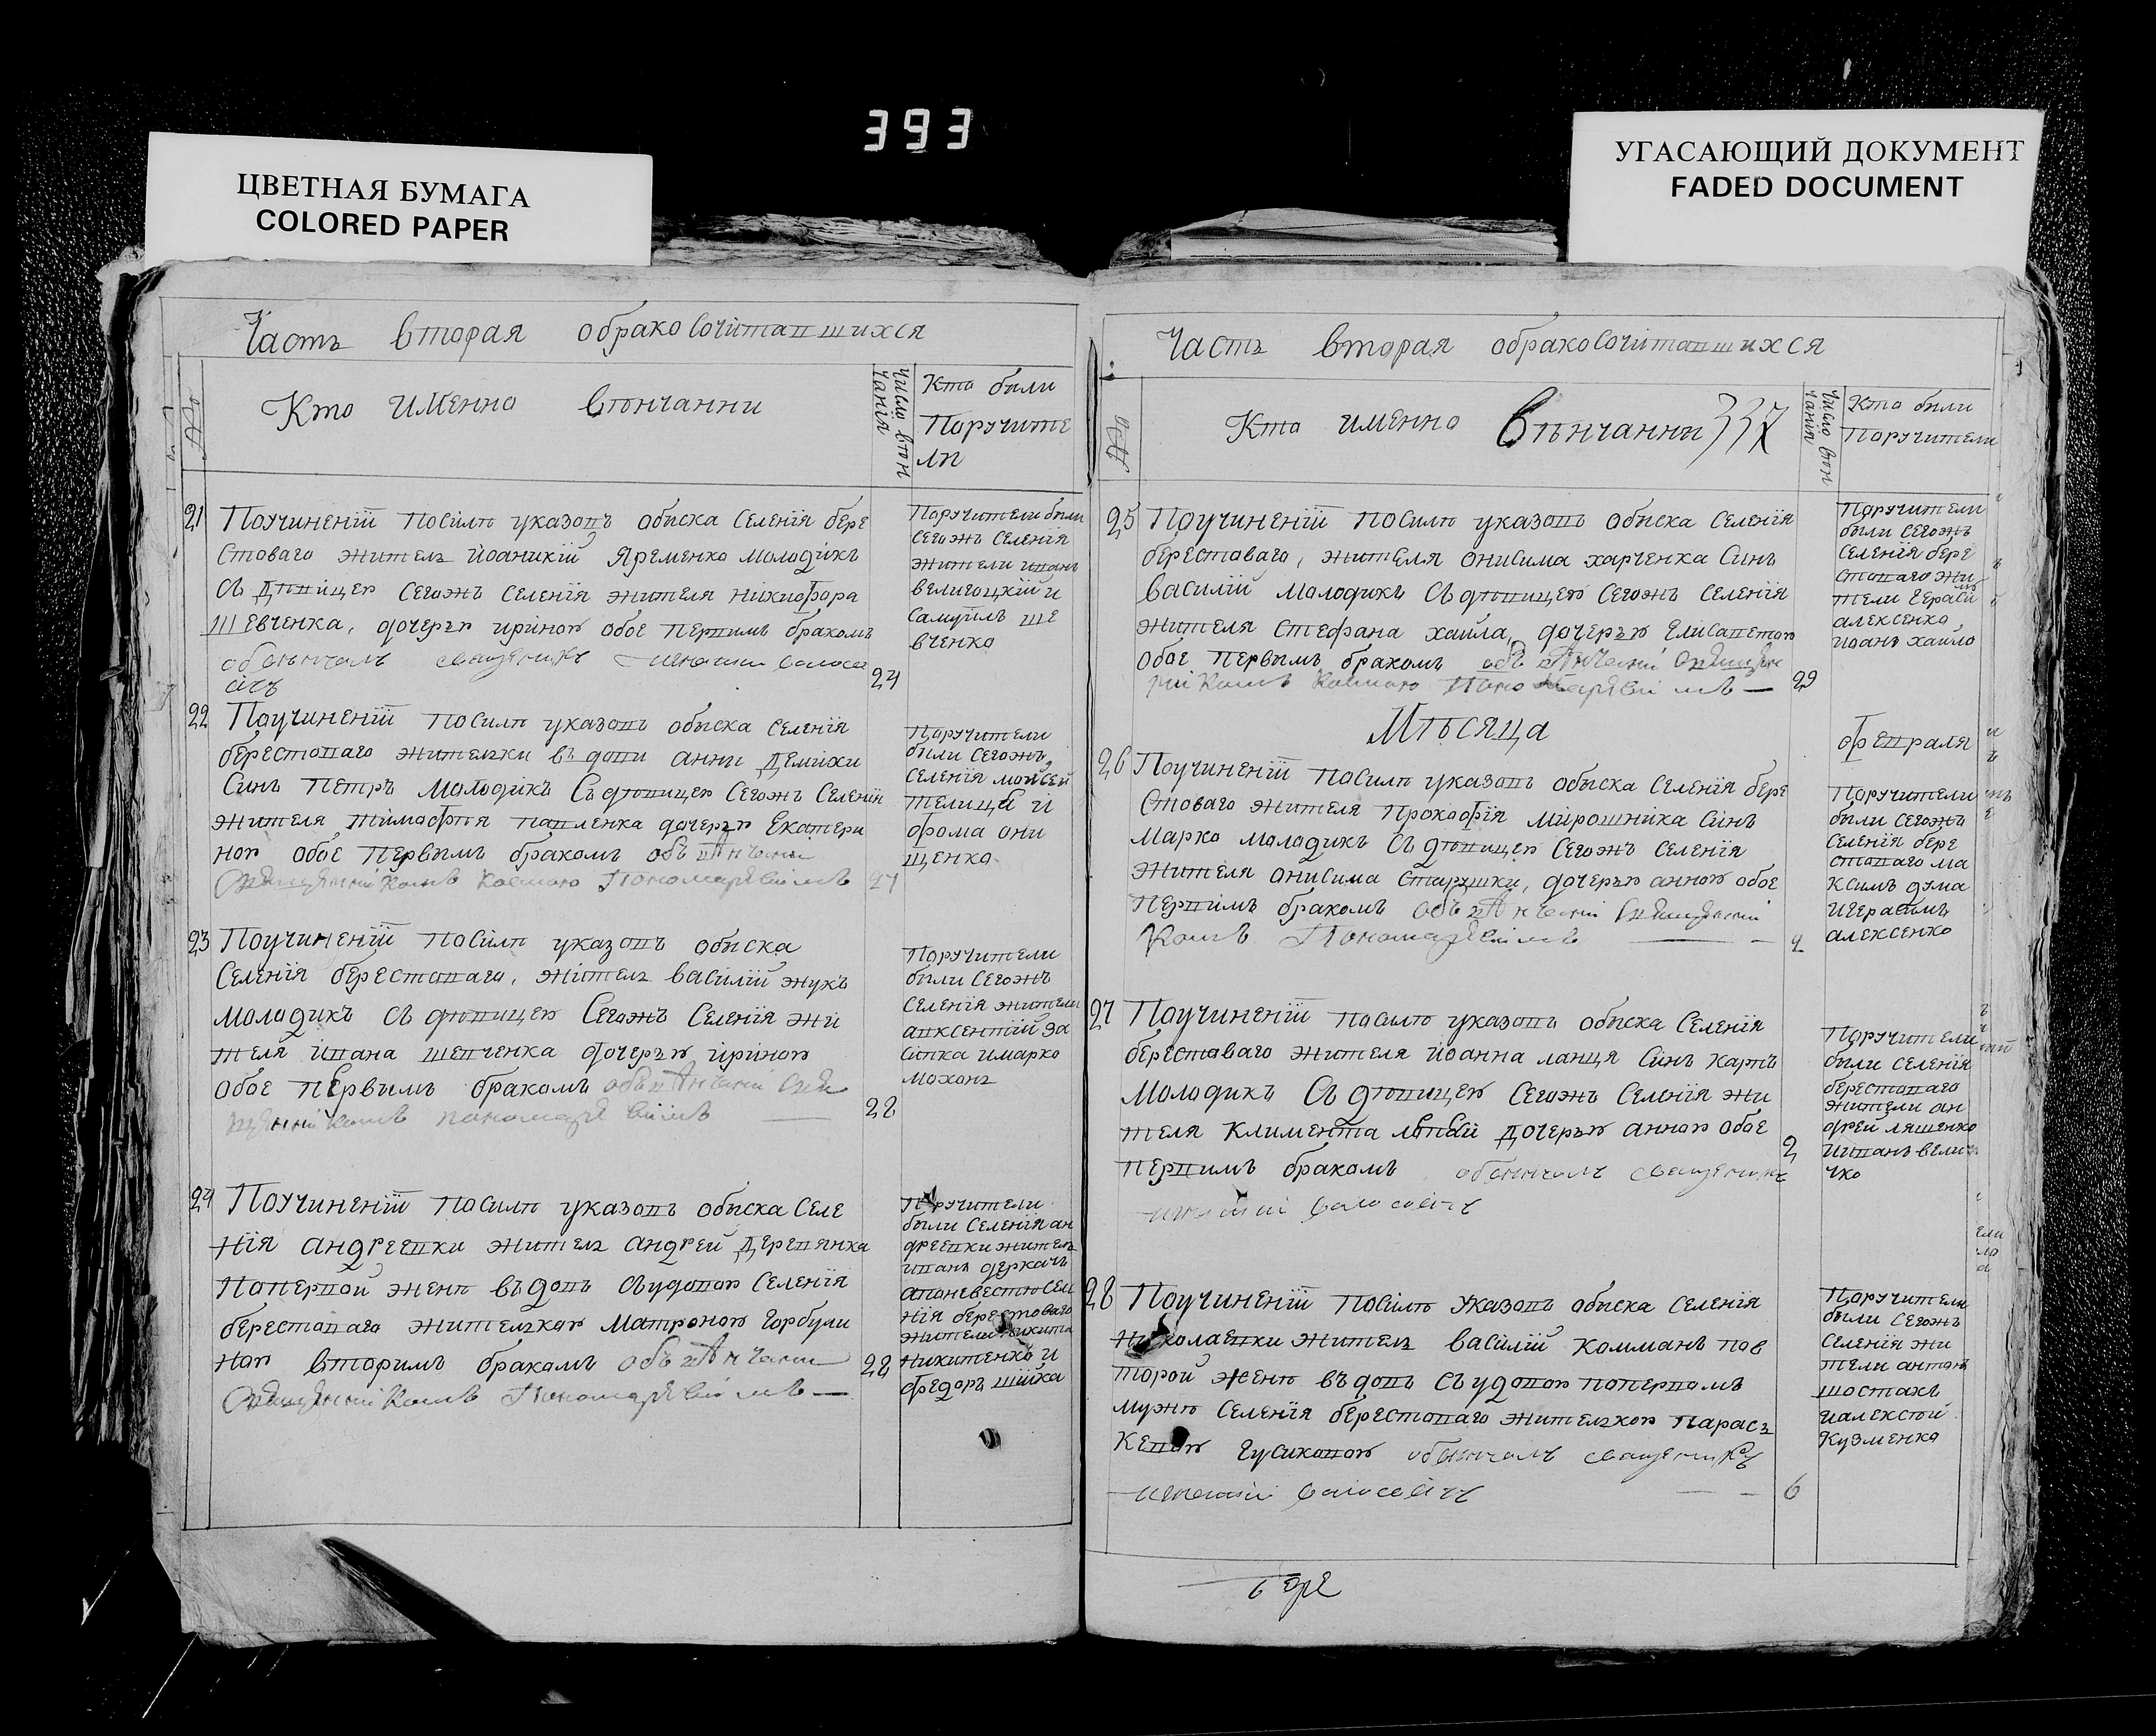 393
ЦВЕТНАЯ БУМАГА
COLORED PAPER
УГАСАЮЩИЙ ДОКУМЕНТ
FADED DOCUMENT
Часть вторая обракосочитавшихся
Кто именно венчанни
число вен
чанія
Кто были
Поручите
ли
21 Поучиненій посилѣ указовъ обыска селенія бере
стоваго житель йоаникій Яременко молодикъ
съ дѣвицею сегожъ селенія жителя никифора
шевченка, дочерью ириною обое первимъ бракомъ
обвѣнчалъ священикъ
24
Поручители были
сегожъ селенія
жители иванъ
велигоцкій и
самуилъ ше
вченко
22 Поучиненій посилѣ указовъ обыска селенія
берестоваго жительки вдови анни демихи
синъ петръ молодикъ съ дѣвицею сегожъ селенія
жителя тимофѣя павленка дочерью екатери
ною обое первымъ бракомъ обвѣнчани
священникомъ космою Пономаревимъ 27
Поручители
были сегожъ
селенія мойсей
телица и
фома они
щенко
23 Поучиненій посилѣ указовъ обыска
селенія берестоваго, житель василій жукъ
молодикъ съ дѣвицею сегожъ селенія жи
теля ивана шевченка дочерью ириною
обое первымъ бракомъ обвѣнчани свя
щенникомъ пономаревимъ 28
Поручители
были сегожъ
селенія жители
авксентій за
сипка имарко
мохонь
24 Поучиненій посилѣ указовъ обыска селе
нія андреевки житель андрей деревянка
поперvой женѣ вдовъ съудовою селенія
берестоваго жителькою матроною горбули
ною вторимъ бракомъ обвѣнчани 28
священникомъ Пономаревимъ —
Поручители
были селенія ан
дреевки житель
иванъ деркачъ
нія берестоваго
жители никита
никитенко и
федоръ шийка
Часть вторая обракосочитавшихся
Кто именно Вѣнчанни 337
число вен
чанія
Кто были
Поручители
25 Поучиненій посилѣ указовъ обыска селенія
берестоваго, жителя онисима харченка синъ
василій молодикъ съ дѣвицею сегожъ селенія
жителя стефана хайла, дочерью елисаветою
обое первымъ бракомъ обвѣнчани священ
никомъ космою Пономаревимъ — 29
Поручители
были сегожъ
селенія бере
стоваго жи
тели герасим
алексенко
иоанъ хайло
Мѣсяца
февраля
26 Поучиненій посилѣ указовъ обыска селенія бере
стоваго жителя прокофія мирошника синъ
марко молодикъ съ дѣвицею сегожъ селенія
жителя онисима старушки, дочерью анною обое
первимъ бракомъ обвѣнчани священни
комъ Пономаревимъ — 2
Поручители
были сегожъ
селенія бере
стоваго ма
ксимъ дума
игерасимъ
алексенко
27 Поучиненій посилѣ указовъ обыска селенія
берестоваго жителя йоанна ланця синъ карпъ
молодикъ съ дѣвицею сегожъ селенія жи
теля климента дочерью анною обое
первимъ бракомъ обвѣнчалъ священикъ
2
Поручители
были селенія
берестоваго
жители ан
дрей ляшенко
ииванъ вели
чко
28 Поучиненій посилѣ указовъ обыска селенія
николаевки житель василій колманъ пов
торой женѣ вдовъ съ удовою поперvомъ
мужѣ селенія берестоваго жителькою парась
кевою гусиковою обвѣнчалъ священикъ
6
Поручители
были сегожъ
селенія жи
тели антонъ
шостакъ
иалексѣй
кузменко